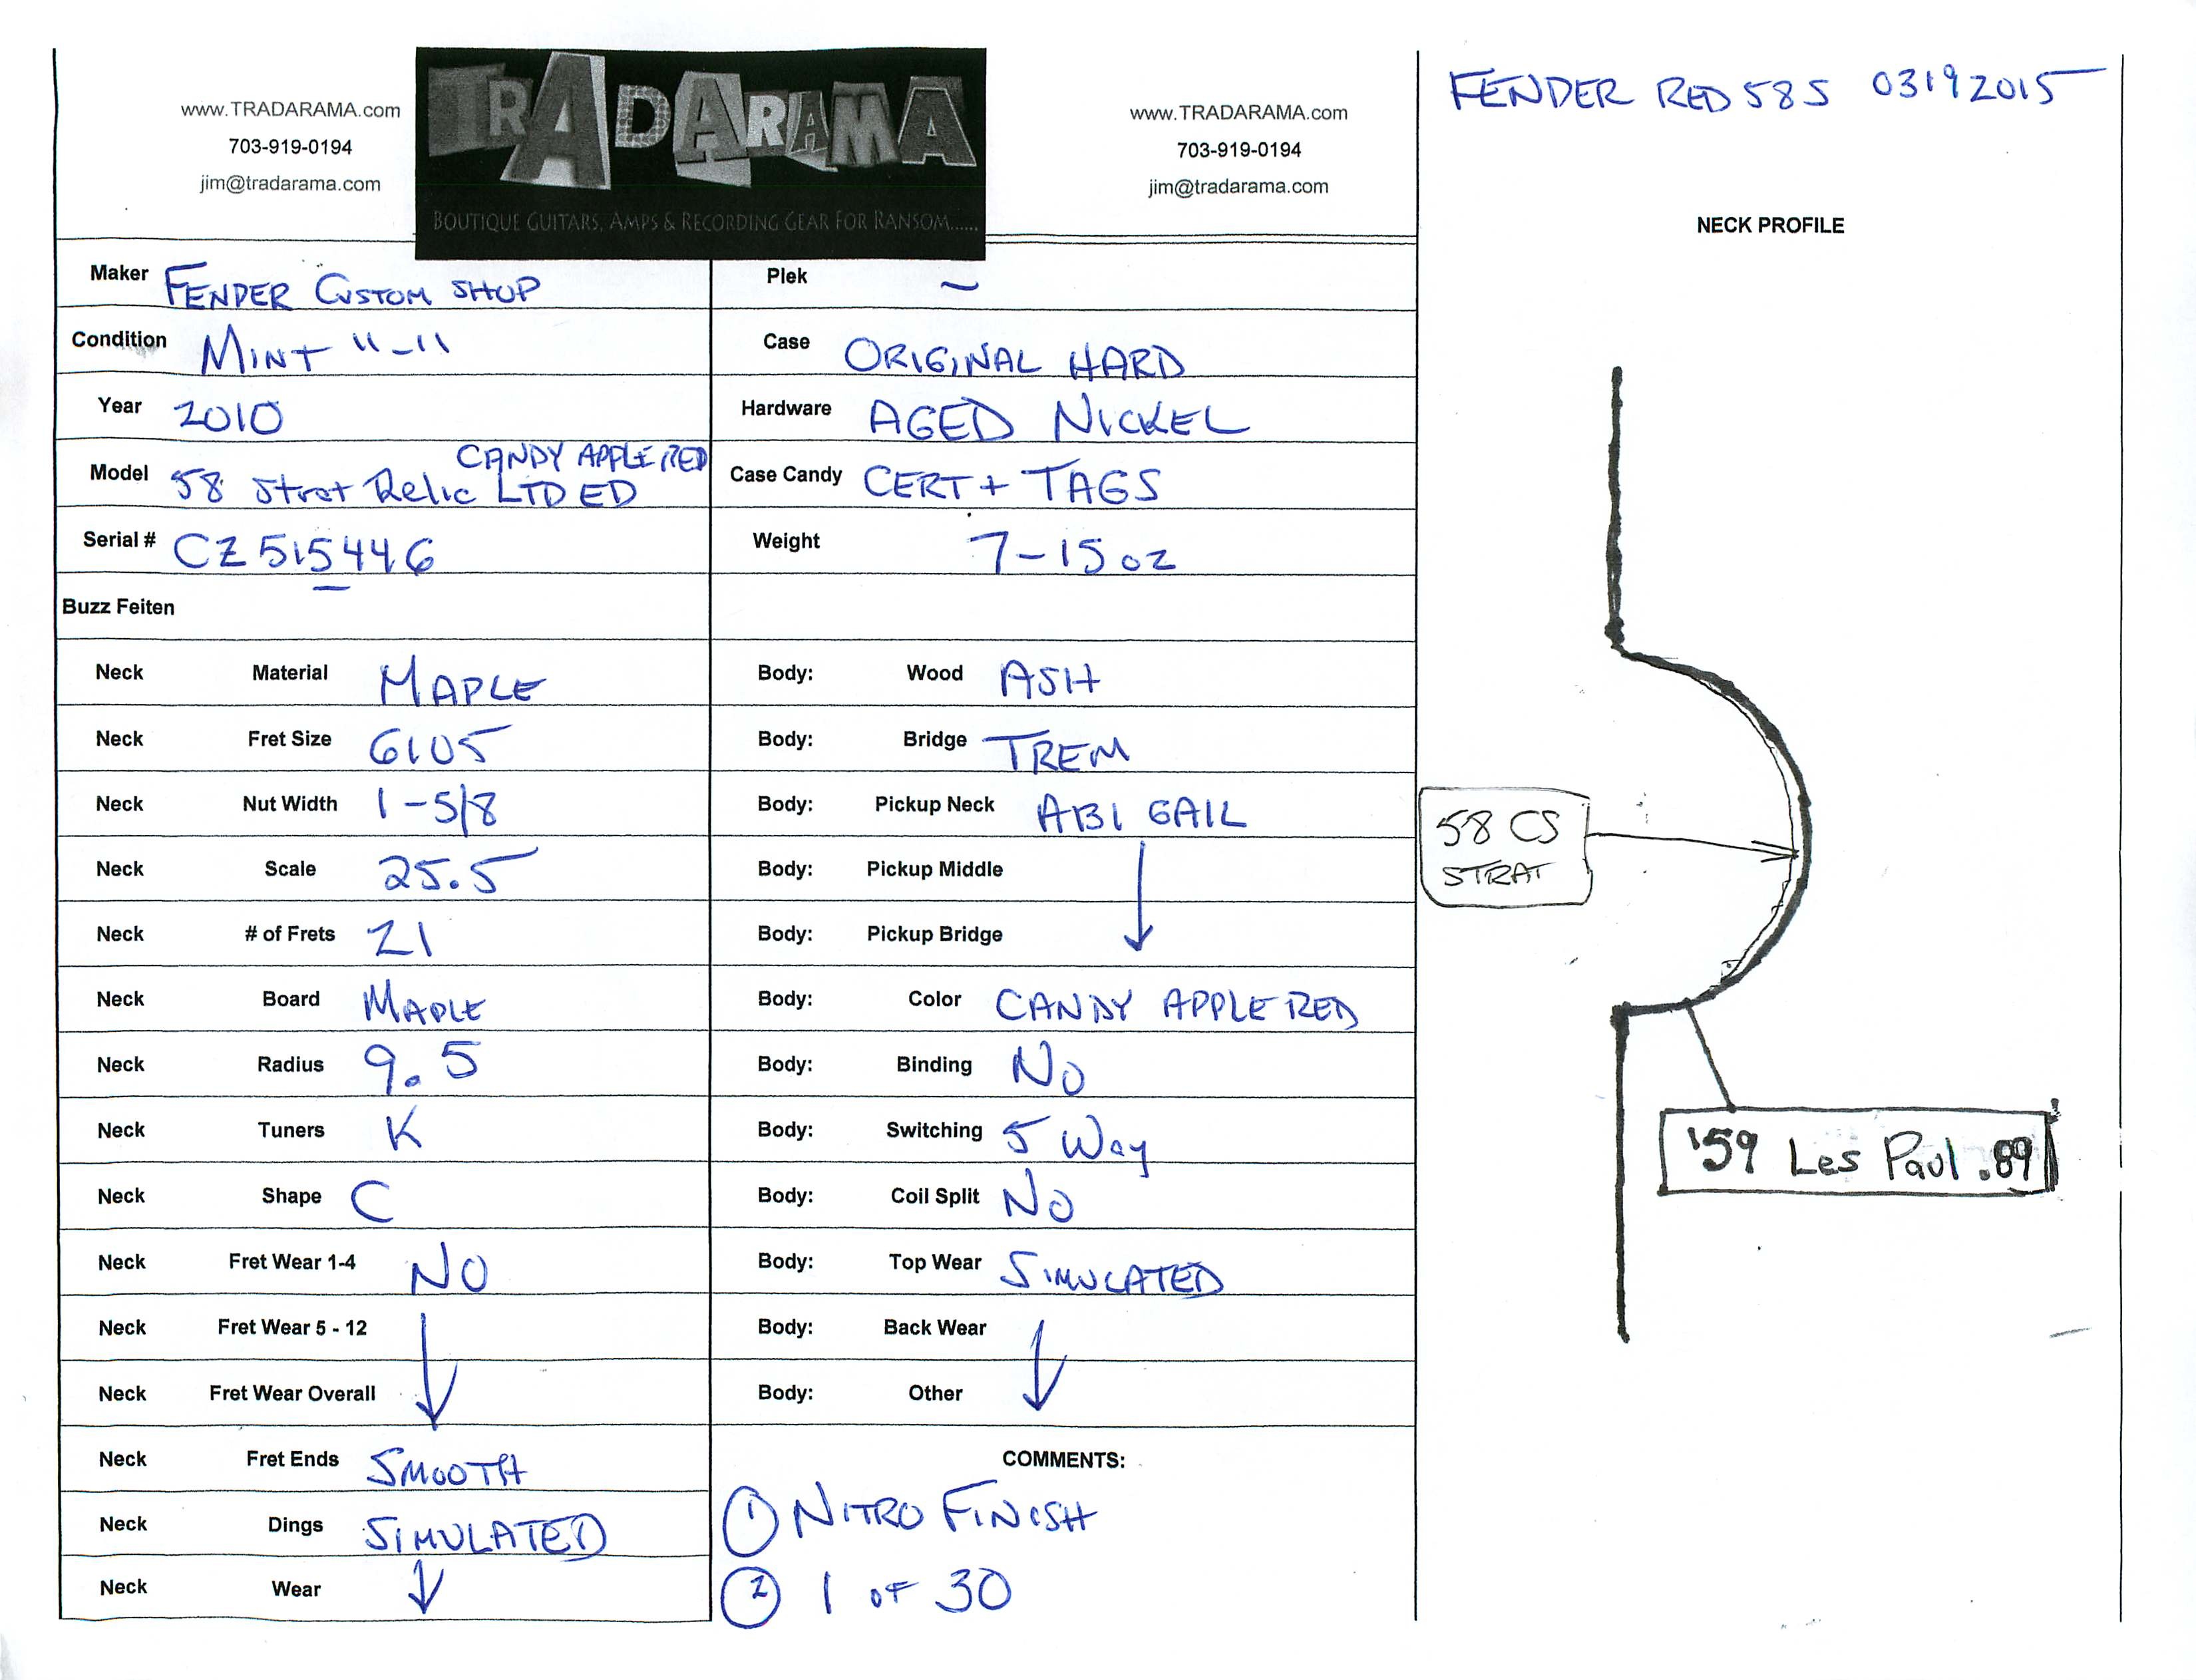 www.TRADARAMA.com
703-919-0194
jim@tradarama.com
TRADARAMA
BOUTIQUE GUITARS, AMPS & RECORDING GEAR FOR RANSOM......
www.TRADARAMA.com
703-919-0194
jim@tradarama.com
FENDER RED 58S 03192015
NECK PROFILE
Maker FENDER CUSTOM SHOP
Plek ~
Condition MINT "-"
Case ORIGINAL HARD
Year 2010
Hardware AGED NICKEL
CANDY APPLE RED
Model 58 Strat Relic LTD ED
Case Candy CERT + TAGS
Serial # CZ515446
Weight 7-15 oz
Buzz Feiten
Neck Material MAPLE
Body: Wood ASH
Neck Fret Size 6105
Body: Bridge TREM
Neck Nut Width 1-5/8
Body: Pickup Neck ABIGAIL
58 CS
STRAT
Neck Scale 25.5
Body: Pickup Middle
Neck # of Frets 21
Body: Pickup Bridge
Neck Board MAPLE
Body: Color CANDY APPLE RED
Neck Radius 9.5
Body: Binding NO
Neck Tuners K
Body: Switching 5 Way
'59 Les Paul .89
Neck Shape C
Body: Coil Split NO
Neck Fret Wear 1-4 NO
Body: Top Wear SIMULATED
Neck Fret Wear 5 - 12
Body: Back Wear
Neck Fret Wear Overall
Body: Other
Neck Fret Ends SMOOTH
COMMENTS:
Neck Dings SIMULATED
1 NITRO FINISH
Neck Wear
2 1 OF 30